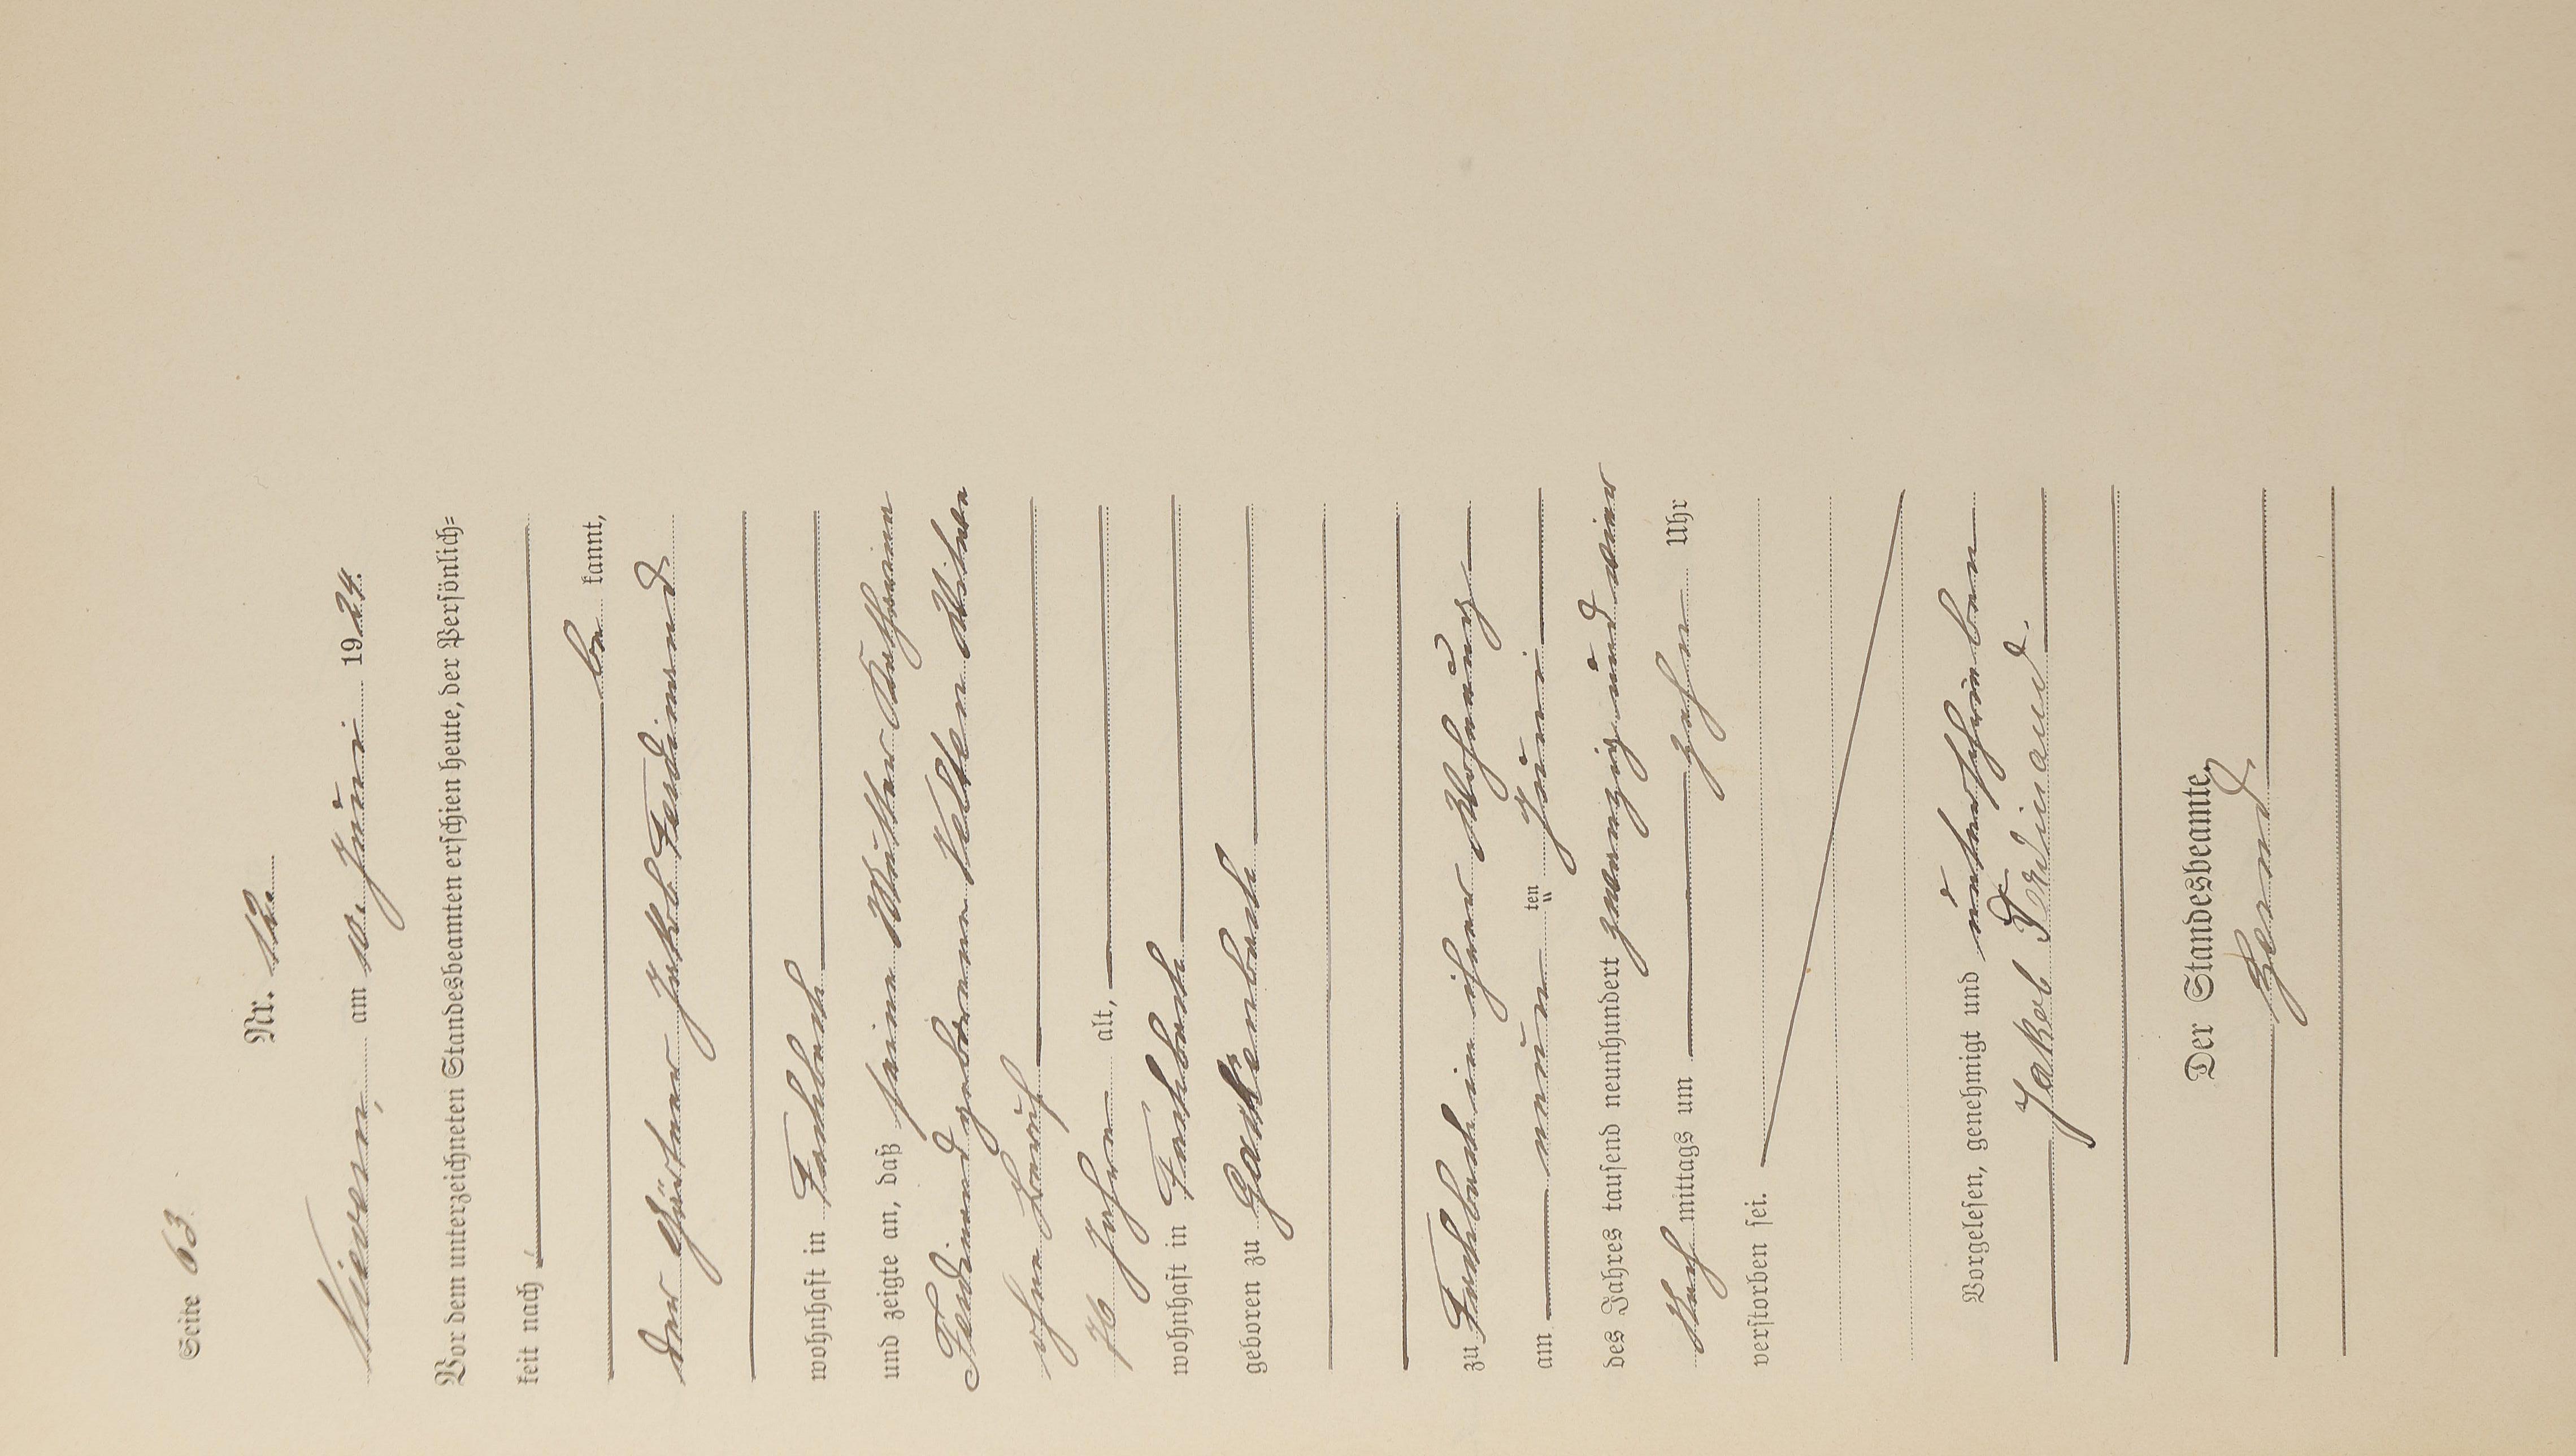 Seite 63.
Nr. 12.
Nievern, am 10. Juni 1924.
Vor dem unterzeichneten Standesbeamten erschien heute, der Persönlich=
keit nach
be kannt,
der Jakob Ferdinand
wohnhaft in Fachbach
und zeigte an, daß seine Mutter Katharina
Ferdinand geborene Witwe
ohne Beruf
76 Jahre alt,
wohnhaft in Fachbach
geboren zu
zu Fachbach in ihrer Wohnung
am neun ten Juni
des Jahres tausend neunhundert zwanzig und vier
Nach mittags um zehn Uhr
verstorben sei.
Vorgelesen, genehmigt und unterschrieben
Jakob Ferdinand.
Der Standesbeamte.